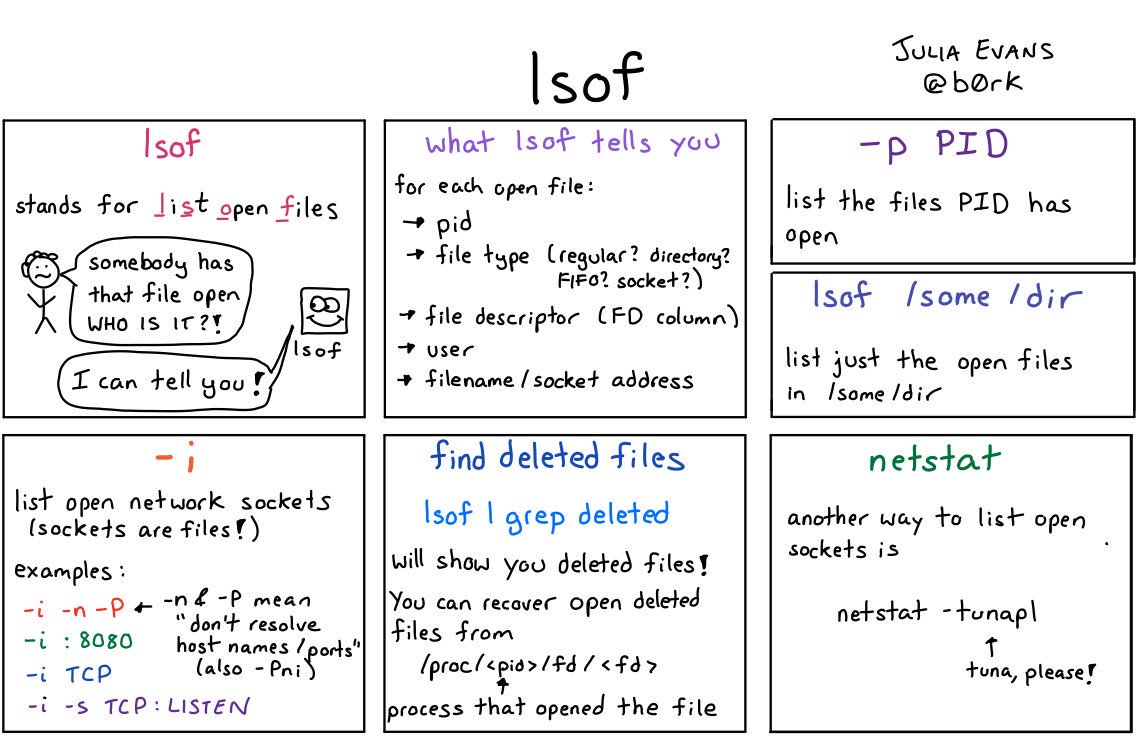 lsof
JULIA EVANS
@b0rk
lsof
stands for list open files
somebody has
that file open
WHO IS IT?!
lsof
I can tell you!
what lsof tells you
for each open file:
→ pid
→ file type (regular? directory?
FIFO? socket?)
→ file descriptor (FD column)
→ user
→ filename/socket address
-p PID
list the files PID has
open
lsof /some/dir
list just the open files
in /some/dir
-i
list open network sockets
(sockets are files!)
examples:
-i -n -P ← -n & -P mean
"don't resolve
host names/ports"
(also -Pni)
-i :8080
-i TCP
-i -s TCP:LISTEN
find deleted files
lsof | grep deleted
will show you deleted files!
You can recover open deleted
files from
/proc/<pid>/fd/<fd>
↑
process that opened the file
netstat
another way to list open
sockets is
netstat -tunapl
↑
tuna, please!